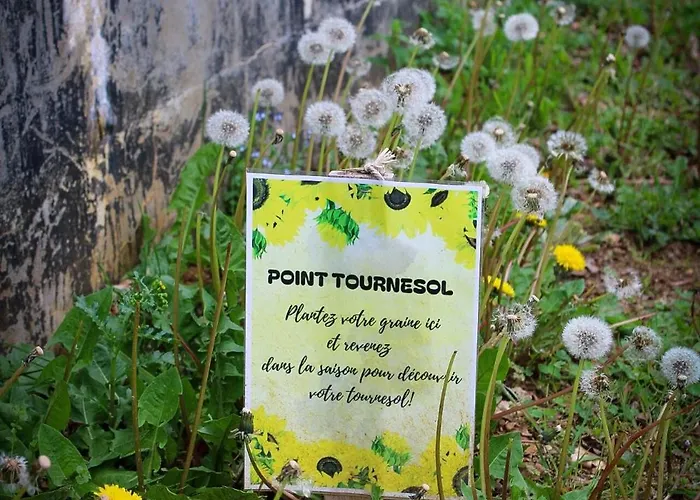 POINT TOURNESOL
Plantez votre graine ici
et revenez
dans la saison pour découvrir
votre tournesol!